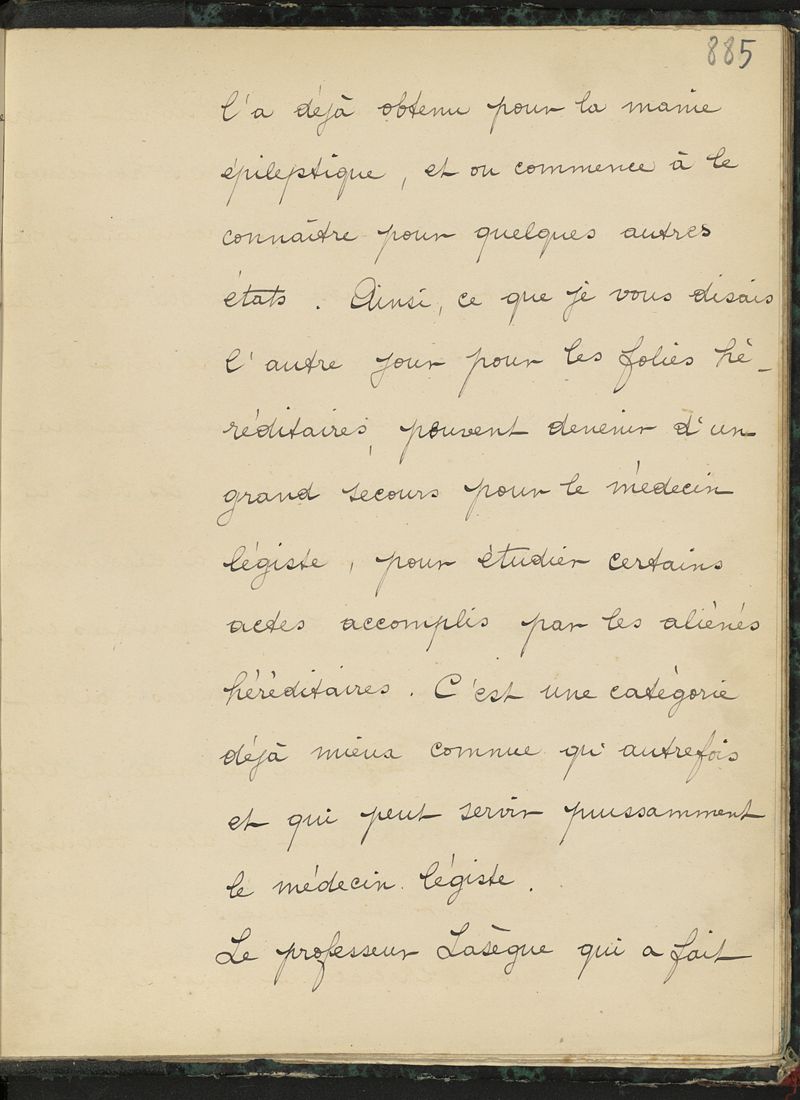 885
l'a déjà obtenu pour la manie
épileptique, et on commence à le
connaître pour quelques autres
états. Ainsi, ce que je vous disais
l'autre jour pour les folies hé-
réditaires, peuvent devenir d'un
grand secours pour le médecin
légiste, pour étudier certains
actes accomplis par les aliénés
héréditaires. C'est une catégorie
déjà mieux connue qu'autrefois
et qui peut servir puissamment
le médecin légiste.
Le professeur Lasègue qui a fait